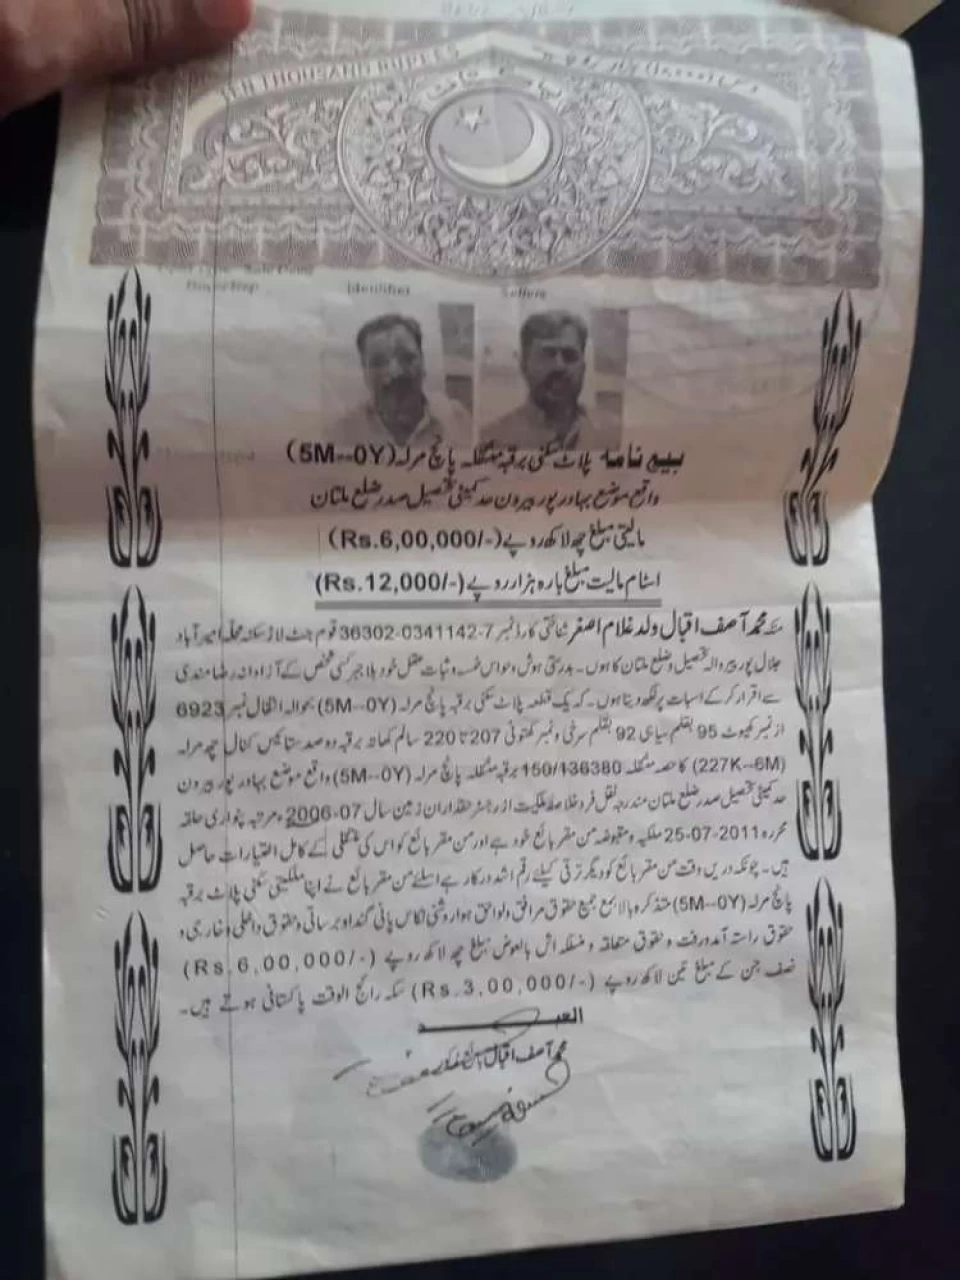 TEN THOUSAND RUPEES
Identifier
Sellers
بیع نامہ پلاٹ سکنی برقبہ منتقلہ پانچ مرلہ (5M--0Y)
واقع موضع بہادر پور بیرون حد کمیٹی تحصیل صدر ضلع ملتان
مالیتی مبلغ چھ لاکھ روپے (Rs.6,00,000/-)
اسٹام مالیت مبلغ بارہ ہزار روپے (Rs.12,000/-)
منکہ محمد آصف اقبال ولد غلام اصغر شناختی کارڈ نمبر 7-0341142-36302 قوم جٹ لاڑ سکنہ محلہ امیر آباد
جلال پور پیر والہ تحصیل و ضلع ملتان کا ہوں۔ بدرستی ہوش و حواس خمسہ و ثبات عقل خود بلا جبر کسی شخص کے آزادانہ رضا مندی
سے اقرار کر کے اسبات پر لکھ دیتا ہوں۔ کہ یک قطعہ پلاٹ سکنی برقبہ پانچ مرلہ (5M--0Y) بحوالہ انتقال نمبر 6923
از نمبر کھیوٹ 95 بقلم سیاہی 92 بقلم سرخی و نمبر کھتونی 207 تا 220 سالم کھاتہ برقبہ دو صد ستائیس کنال چھ مرلہ
(227K--6M) کا حصہ منتقلہ 150/136380 برقبہ منتقلہ پانچ مرلہ (5M--0Y) واقع موضع بہادر پور بیرون
حد کمیٹی تحصیل صدر ضلع ملتان مندرجہ نقل فرد خلاصہ ملکیت از رجسٹر حقداران زمین سال 07-2006 مرتبہ پٹواری حلقہ
محررہ 25-07-2011 ملکیہ و مقبوضہ من مقر بائع خود ہے اور من مقر بائع کو اس کی منتقلی کے کامل اختیارات حاصل
ہیں۔ چونکہ دریں وقت من مقر بائع کو دیگر ترقی کیلئے رقم اشد درکار ہے اسلئے من مقر بائع نے اپنا ملکیتی سکنی پلاٹ برقبہ
پانچ مرلہ (5M--0Y) متذکرہ بالا بمع جمیع حقوق مرافق ولواحق ہوا روشنی نکاس پانی گندا و برساتی و حقوق داخلی و خارجی و
حقوق راستہ آمدورفت و حقوق متعلقہ و منسلکہ اش بالعوض مبلغ چھ لاکھ روپے (Rs.6,00,000/-)
نصف جن کے مبلغ تین لاکھ روپے (Rs.3,00,000/-) سکہ رائج الوقت پاکستانی ہوتے ہیں۔
العبد
محمد آصف اقبال